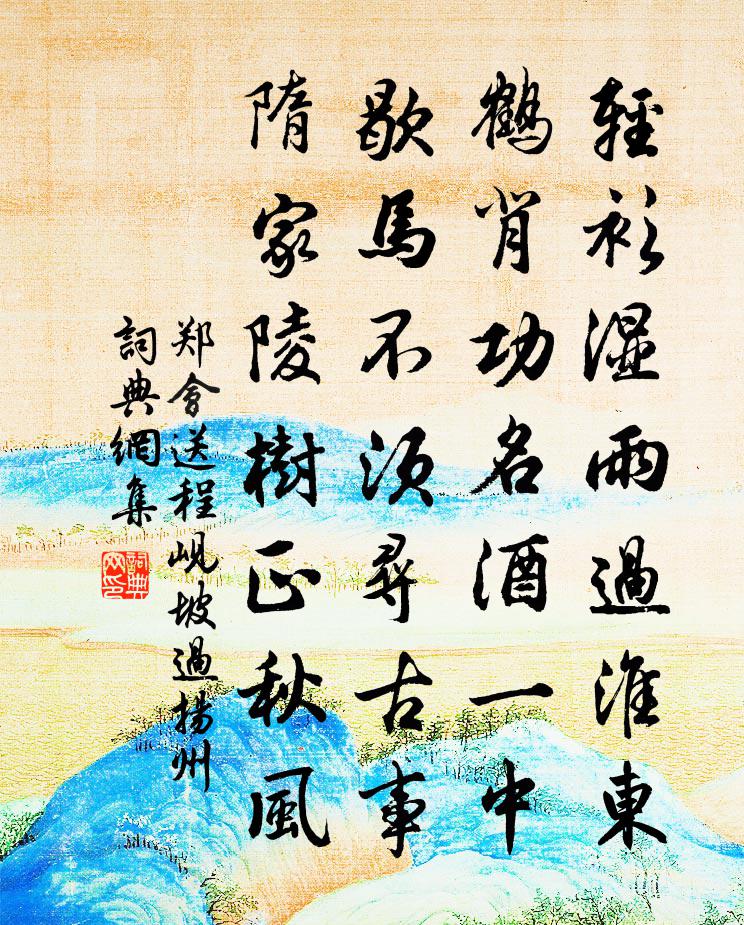 輕衫濕雨過淮東
鶴背功名酒一中
歇馬不須尋古事
隋家陵樹正秋風
郑會送程峴坡過揚州
詞典網集
詞典
网印